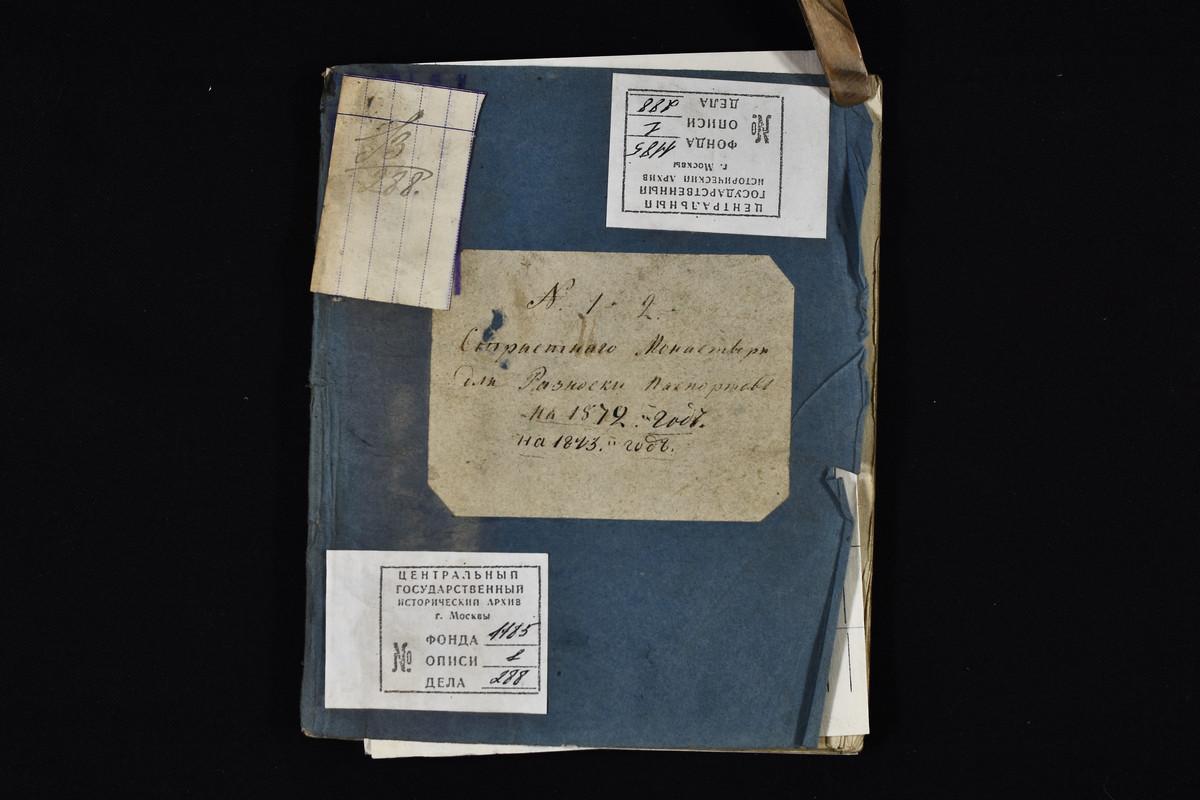 1/3
288.
ЦЕНТРАЛЬНЫЙ
ГОСУДАРСТВЕННЫЙ
ИСТОРИЧЕСКИЙ АРХИВ
г. Москвы
№
ФОНДА 1185
ОПИСИ 1
ДЕЛА 288
N. 1 - 2.
Страстнаго Монастыря
для Разноски Паспортовъ
на 1872.й годъ.
на 1873.й годъ.
ЦЕНТРАЛЬНЫЙ
ГОСУДАРСТВЕННЫЙ
ИСТОРИЧЕСКИЙ АРХИВ
г. Москвы
№
ФОНДА 1185
ОПИСИ 1
ДЕЛА 288